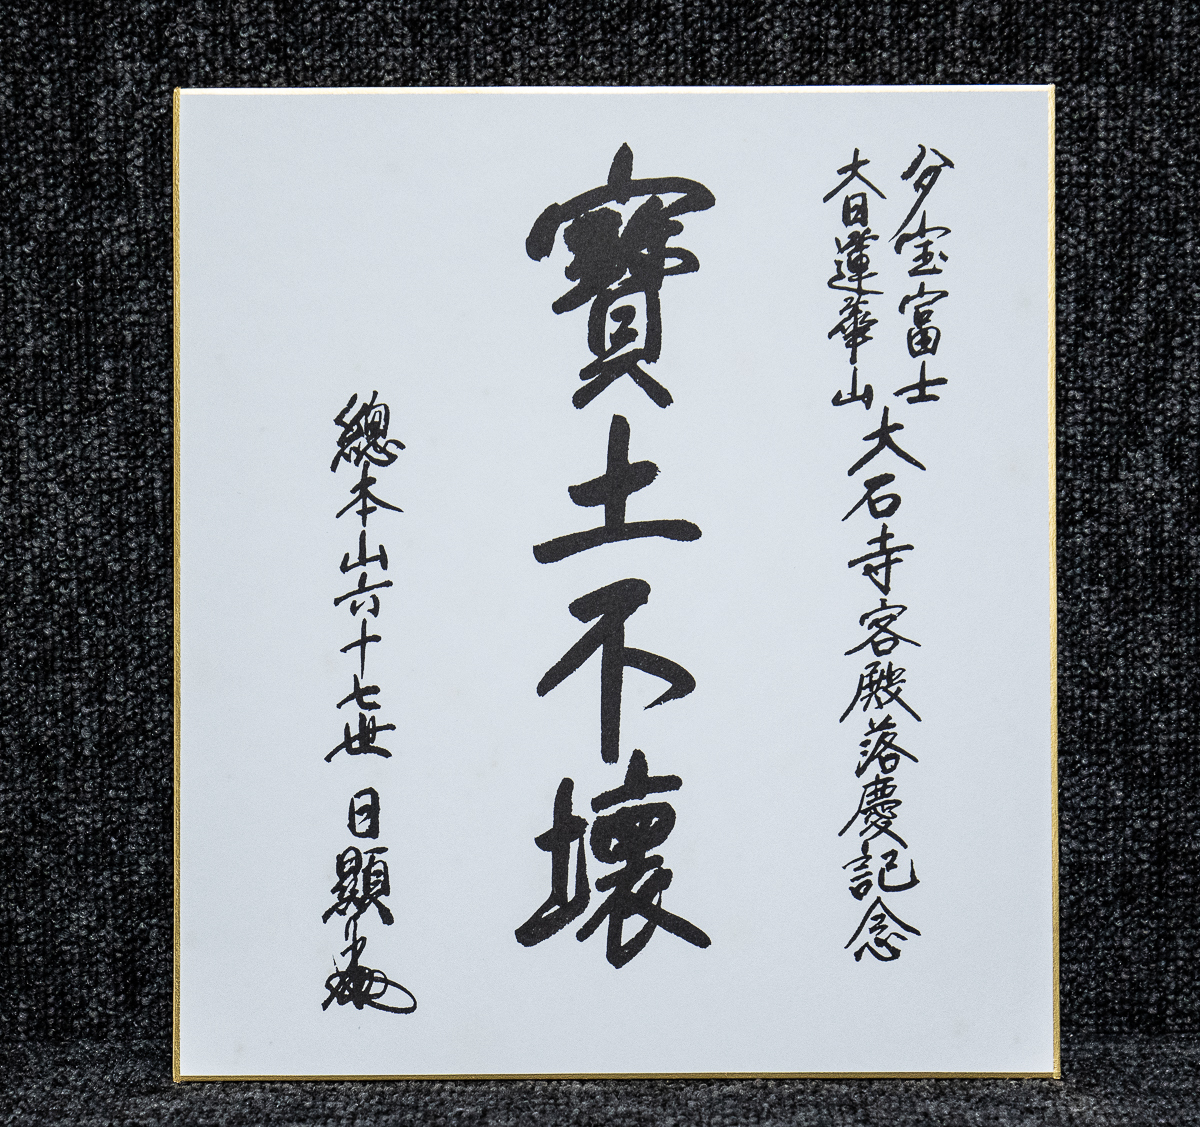 多宝富士
大日蓮華山
大石寺客殿落慶記念
寶土不壞
總本山六十七世 日顯